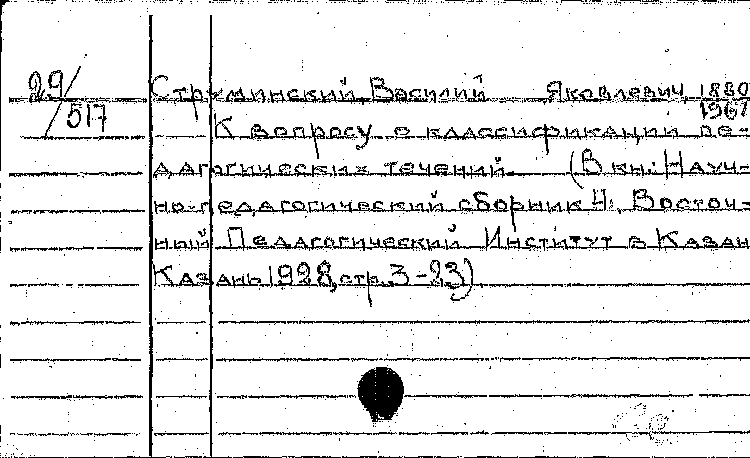 29/517
Струминский Василий Яковлевич 1880
1967
К вопросу о классификации пе-
дагогических течений. (В кн: Науч-
но-педагогический сборник 4: Восточ-
ный Педагогический Институт в Казан
Казань 1928, стр. 3-23)